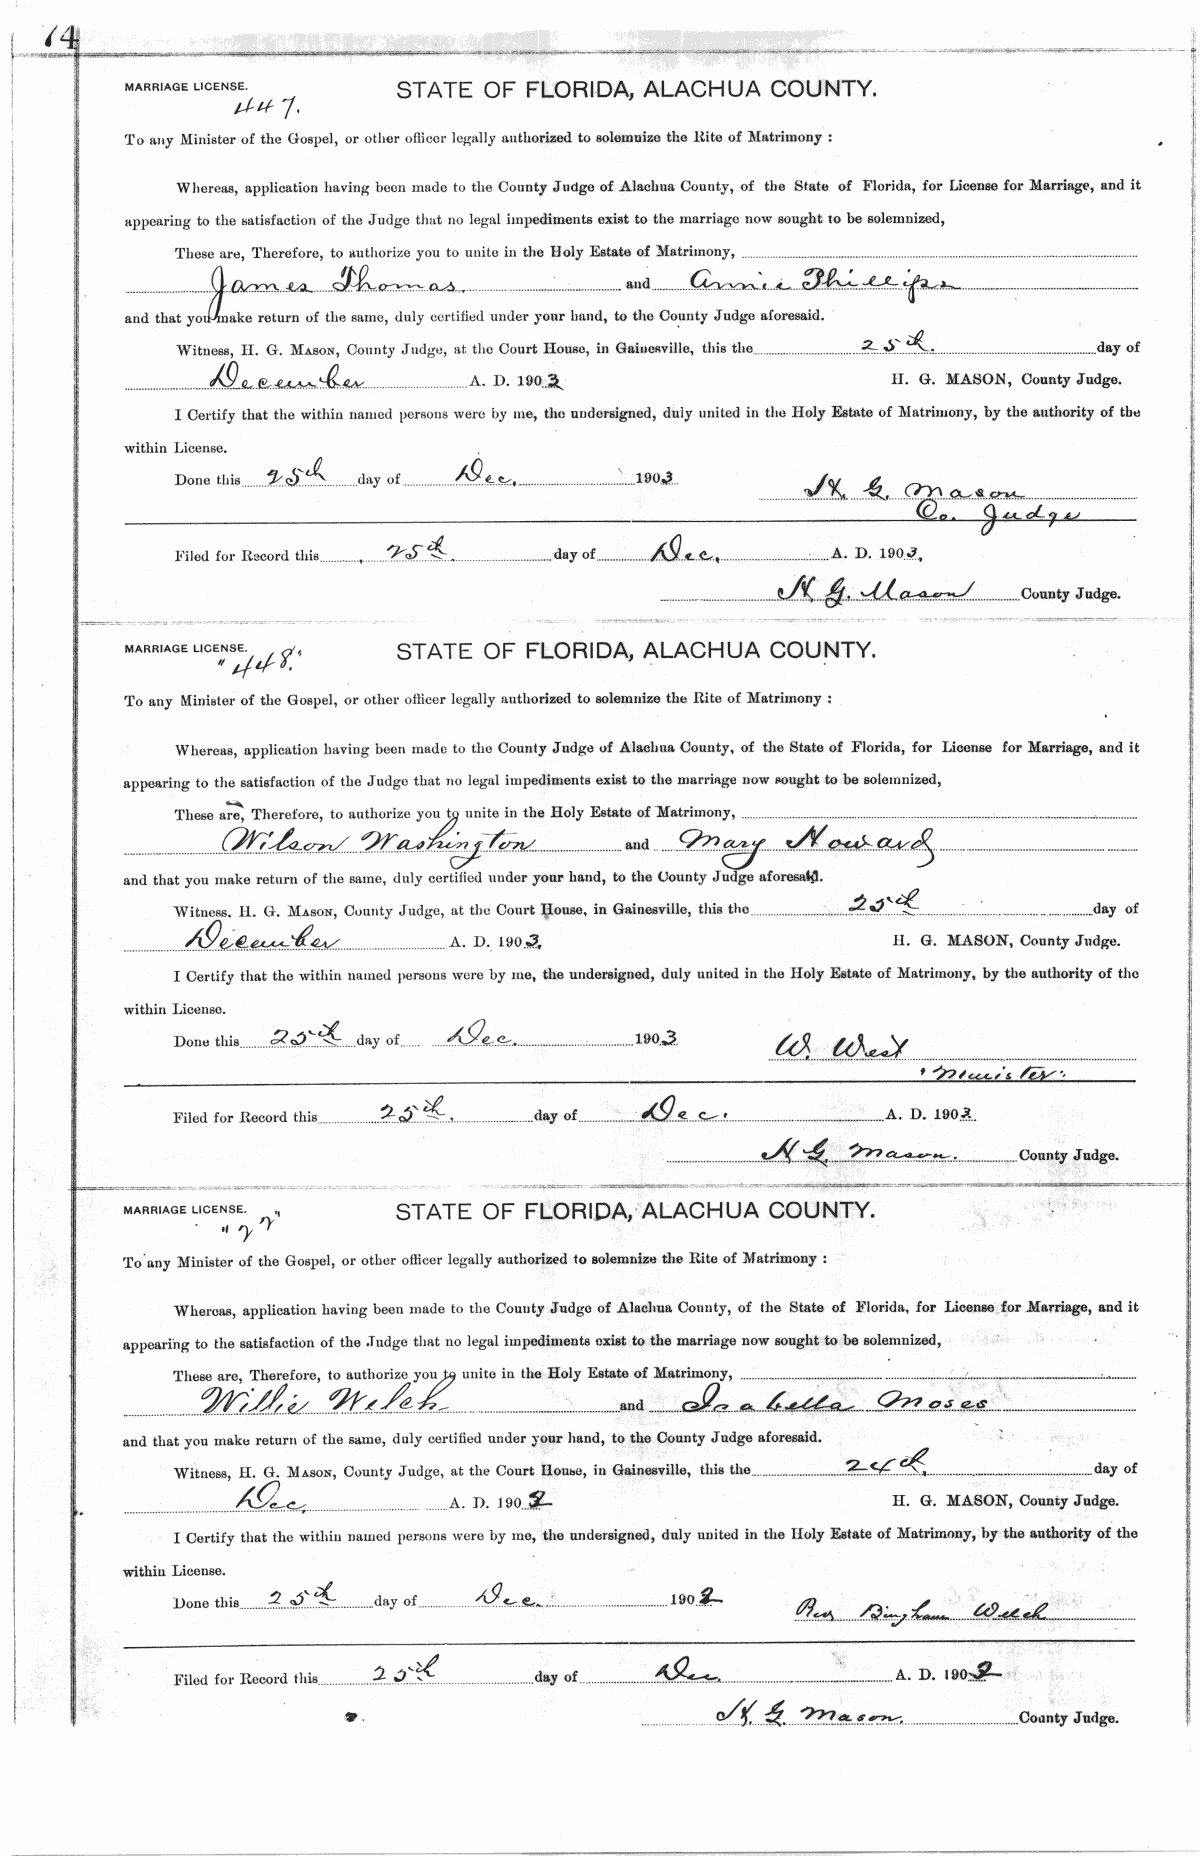 74
MARRIAGE LICENSE. STATE OF FLORIDA, ALACHUA COUNTY.
447.
To any Minister of the Gospel, or other officer legally authorized to solemnize the Rite of Matrimony :
Whereas, application having been made to the County Judge of Alachua County, of the State of Florida, for License for Marriage, and it
appearing to the satisfaction of the Judge that no legal impediments exist to the marriage now sought to be solemnized,
These are, Therefore, to authorize you to unite in the Holy Estate of Matrimony,
James Thomas. and Annie Phillips
and that you make return of the same, duly certified under your hand, to the County Judge aforesaid.
Witness, H. G. MASON, County Judge, at the Court House, in Gainesville, this the 25th. day of
December A. D. 1903 H. G. MASON, County Judge.
I Certify that the within named persons were by me, the undersigned, duly united in the Holy Estate of Matrimony, by the authority of the
within License.
Done this 25th day of Dec. 1903
H. G. Mason
Co. Judge
Filed for Record this 25th. day of Dec. A. D. 1903.
H. G. Mason County Judge.
MARRIAGE LICENSE. STATE OF FLORIDA, ALACHUA COUNTY.
"448."
To any Minister of the Gospel, or other officer legally authorized to solemnize the Rite of Matrimony :
Whereas, application having been made to the County Judge of Alachua County, of the State of Florida, for License for Marriage, and it
appearing to the satisfaction of the Judge that no legal impediments exist to the marriage now sought to be solemnized,
These are, Therefore, to authorize you to unite in the Holy Estate of Matrimony,
Wilson Washington and Mary Howard
and that you make return of the same, duly certified under your hand, to the County Judge aforesaid.
Witness, H. G. MASON, County Judge, at the Court House, in Gainesville, this the 25th day of
December A. D. 1903. H. G. MASON, County Judge.
I Certify that the within named persons were by me, the undersigned, duly united in the Holy Estate of Matrimony, by the authority of the
within License.
Done this 25th day of Dec. 1903
W. West
"Minister"
Filed for Record this 25th. day of Dec. A. D. 1903.
H. G. Mason. County Judge.
MARRIAGE LICENSE. STATE OF FLORIDA, ALACHUA COUNTY.
"22"
To any Minister of the Gospel, or other officer legally authorized to solemnize the Rite of Matrimony :
Whereas, application having been made to the County Judge of Alachua County, of the State of Florida, for License for Marriage, and it
appearing to the satisfaction of the Judge that no legal impediments exist to the marriage now sought to be solemnized,
These are, Therefore, to authorize you to unite in the Holy Estate of Matrimony,
Willie Welch and Isabella Moses
and that you make return of the same, duly certified under your hand, to the County Judge aforesaid.
Witness, H. G. MASON, County Judge, at the Court House, in Gainesville, this the 24th. day of
Dec. A. D. 1902 H. G. MASON, County Judge.
I Certify that the within named persons were by me, the undersigned, duly united in the Holy Estate of Matrimony, by the authority of the
within License.
Done this 25th day of Dec. 1902
Rev Bingham Welch
Filed for Record this 25th day of Dec. A. D. 1902
H. G. Mason. County Judge.